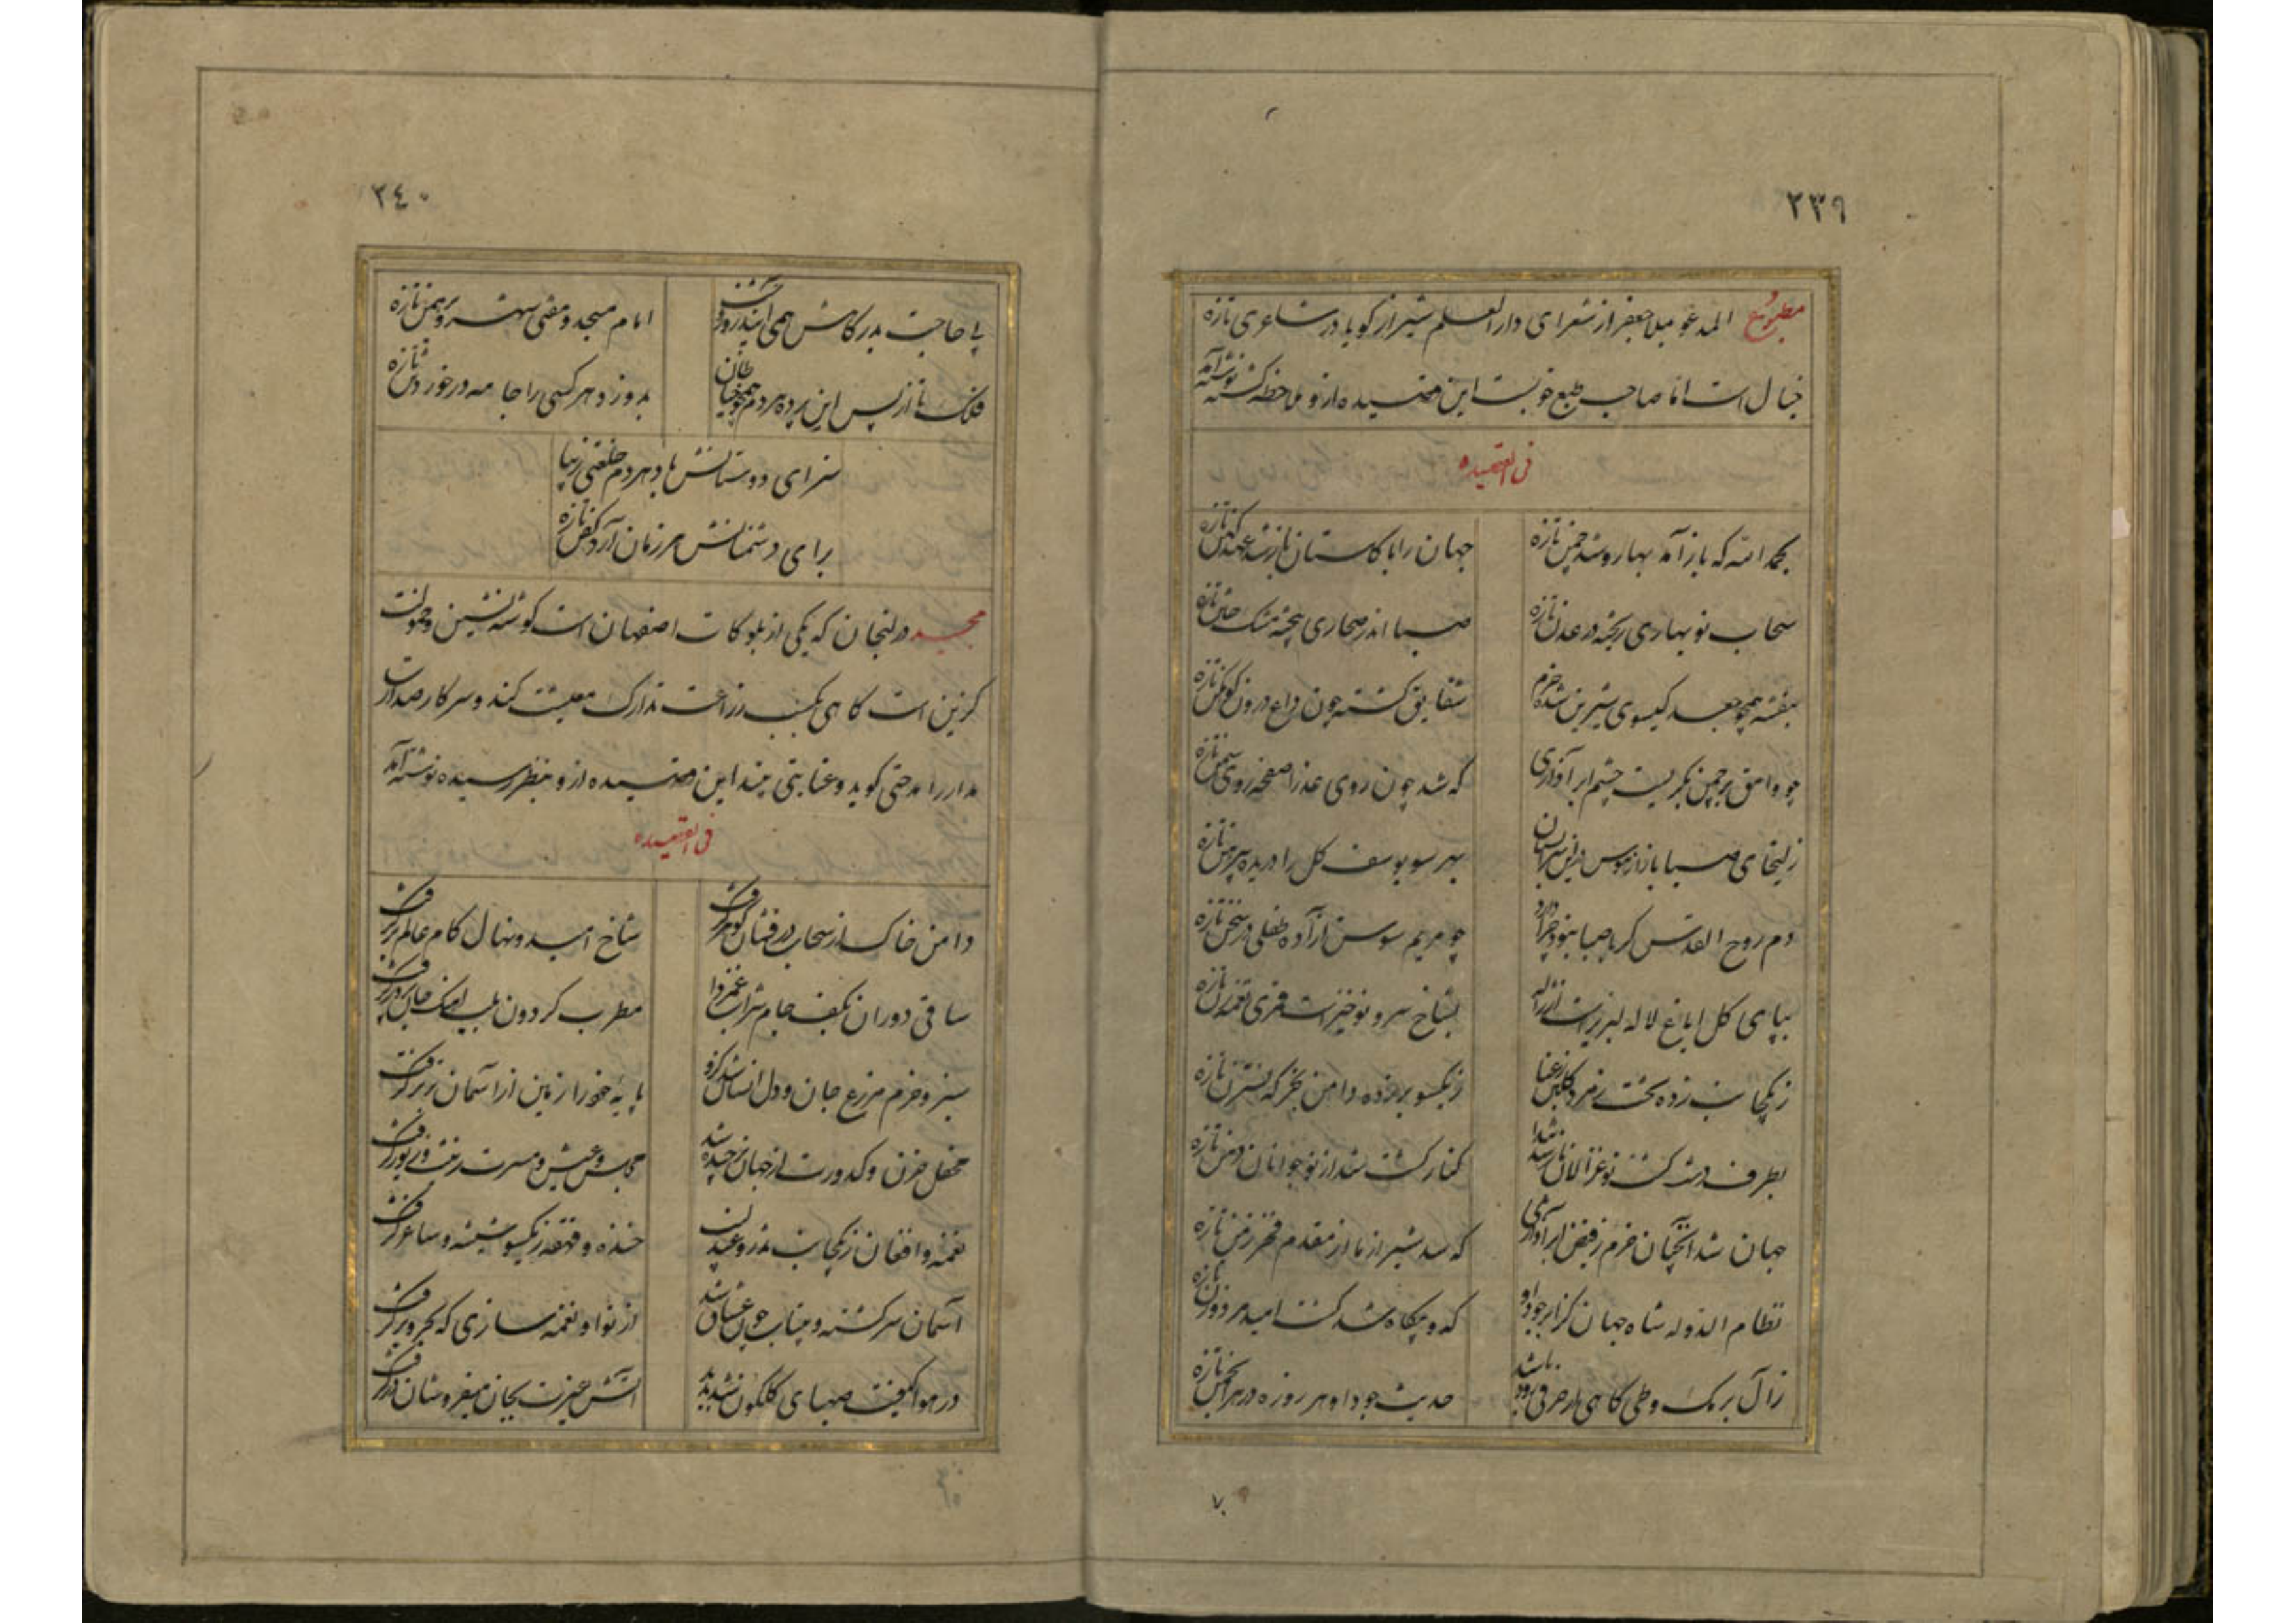 ۲۳۹
مطبوع المدعو بملا جعفر از شعرای دارالعلم شیراز گویا در شاعری تازه
خیال است اما صاحب طبع خوبست این قصیده ازو ملاحظه گشته نوشته آمد
فی القصیده
بحمد الله که باز آمد بهار و شد چمن تازه
جهان را با گلستان باز شد عهد کهن تازه
سحاب نوبهاری ریخته در عدن تازه
صبا اندر صحاری بیخته مشک ختن تازه
بنفشه همچو جعد گیسوی شیرین شده خرم
شقایق گشته چون داغ درون کوهکن تازه
چو وامق بر چمن بگریست چشم ابر آذاری
که شد چون روی عذرا صفحه روی سمن تازه
زلیخای صبا باز از هوس در این سرابستان
بهر سو یوسف گل را دریده پیرهن تازه
دم روح القدس گر با صبا نبود چرا دارد
چو مریم سوسن آزاده طفلی در سخن تازه
بپای گل ایاغ لاله لبریز است از ژاله
بشاخ سرو نوخیز است قمری نغمه زن تازه
ز یکجانب زده تخت زمرد گلبن رعنا
ز یکسو بر زده دامن بخرگه نسترن تازه
بطرف دشت گشت نو غزالان باز شد
کنار کشت شد از نوجوانان دمن تازه
جهان شد آنچنان خرم ز فیض ابر آذاری
که شد شیراز باز از مقدم فخر زمن تازه
نظام الدوله شاه جهان کز ابر جود او
که و بیگاه شد کشت امید مرد و زن تازه
ز آل برمک و طی گاهی ار حرفی رود باشد
حدیث جود او هر روزه در هر انجمن تازه
۲۴۰
پی حاجت بدرگاهش همی آیند روز و شب
امام مسجد و مفتی شهر و برهمن تازه
فلک تا از پس این پرده هر دم همچو خیاطان
بدوزد هر کسی را جامه در خورد تن تازه
سزای دوستانش باد هر دم خلعتی زیبا
برای دشمنانش هر زمان آرد کفن تازه
مجید در لنجان که یکی از بلوکات اصفهان است گوشه نشین و خمولت
گزین است گاهی بکسب زراعت تدارک معیشت کند و سرکار صدارت
مدار را مدحتی گوید و عنایتی بیند این قصیده ازو بنظر رسیده نوشته آمد
فی القصیده
دامن خاک از سحاب در فشان گوهر گرفت
شاخ امید و نهال کام عالم بر گرفت
ساقی دوران بکف جام شراب غمزدا
مطرب گردون بلب
سبز و خرم مزرع جان و دل انسان شد
پایه خود را زمین از آسمان برتر گرفت
محفل حزن و کدورت از جهان برچیده شد
مجلس و عیش و مسرت زینت و زیور گرفت
نغمه و افغان ز یکجانب
خنده و قهقه ز یکسو شیشه و ساغر گرفت
آسمان سرگشته و بیتاب چون عشاق شد
از نوا و نغمه سازی که
در هوا کیفیت صهبای گلگون شد پدید
آتش حیرت بجان میفروشان در گرفت